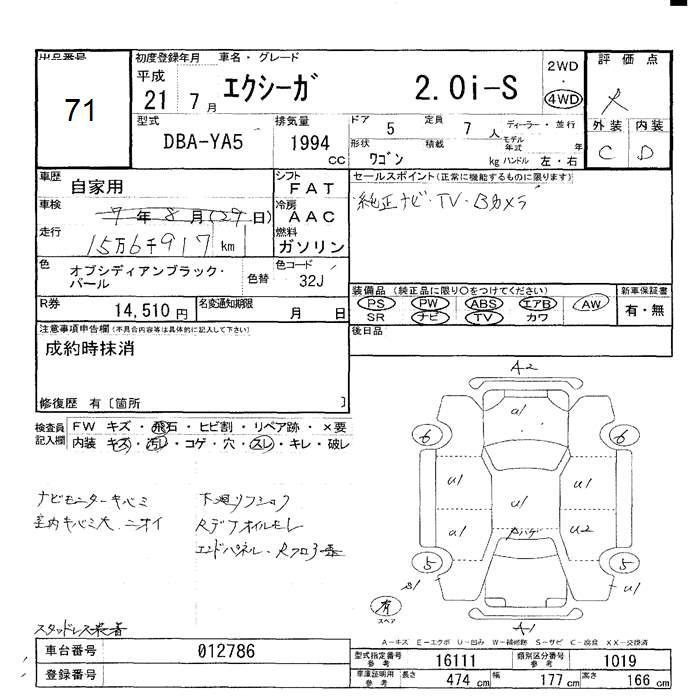 出品番号
71
初度登録年月
平成
21 7月
車名・グレード
エクシーガ 2.0i-S
2WD
・
4WD
評価点
外装 内装
C D
型式
DBA-YA5
排気量
1994
cc
ドア 5
定員 7 人
形状 ワゴン
積載 kg
ディーラー・並行
モデル年式 年
ハンドル 左・右
車歴
自家用
車検
7年8月(29日)
走行
15万6千917 km
シフト
FAT
冷房
AAC
燃料
ガソリン
色
オブシディアンブラック・パール
色替
色コード
32J
R券
14,510円
名変通知期限
月 日
セールスポイント(正常に機能するものに限ります)
純正ナビ・TV・Bカメラ
装備品(純正品に限り○をつけてください)
PS PW ABS エアB AW
SR ナビ TV カワ
新車保証書
有・無
後日品
注意事項申告欄(不具合内容等は具体的に記入して下さい)
成約時抹消
修復歴 有[箇所 ]
検査員記入欄
FW キズ・飛石・ヒビ割・リペア跡・×要
内装 キズ・汚レ・コゲ・穴・スレ・キレ・破レ
ナビモニターキバミ
室内キバミ大.ニオイ
Rデフオイルモレ
エンドパネル・Rフロ
スタッドレス装着
A2
a1
6 6
u1 u1
u1
a1 u2
5 5
s1 u1
有
スペア
A1
A-キズ E-エクボ U-凹み W-補修跡 S-サビ C-腐食 XX-交換済
車台番号
012786
登録番号
型式指定番号
参考
16111
類別区分番号
参考
1019
車庫証明用
参考
長さ 474 cm
幅 177 cm
高さ 166 cm